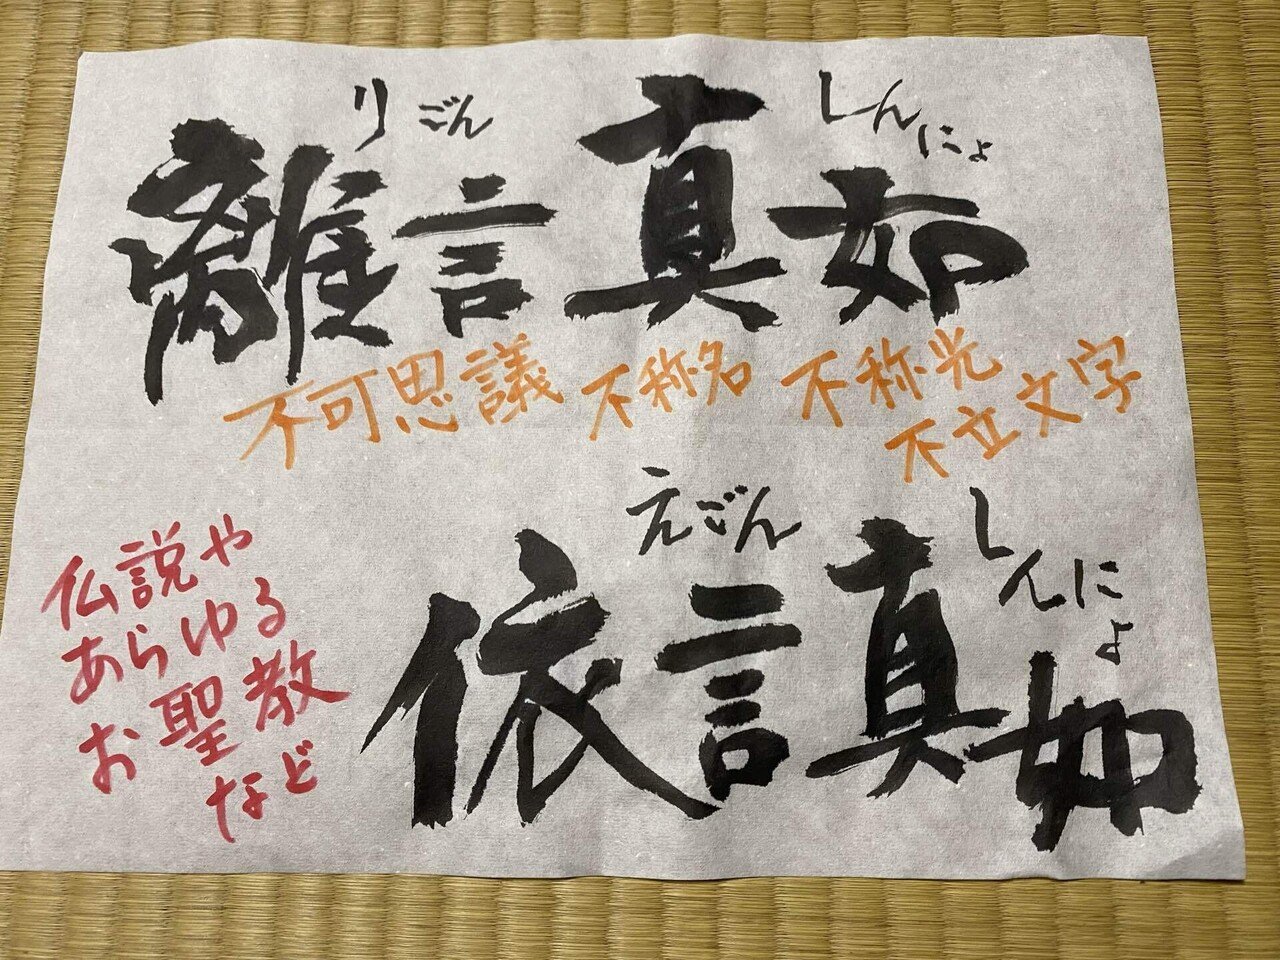 りごん しんにょ
離言真如
不可思議 不称名 不称光
不立文字
えごん しんにょ
依言真如
仏説や
あらゆる
お聖教
など